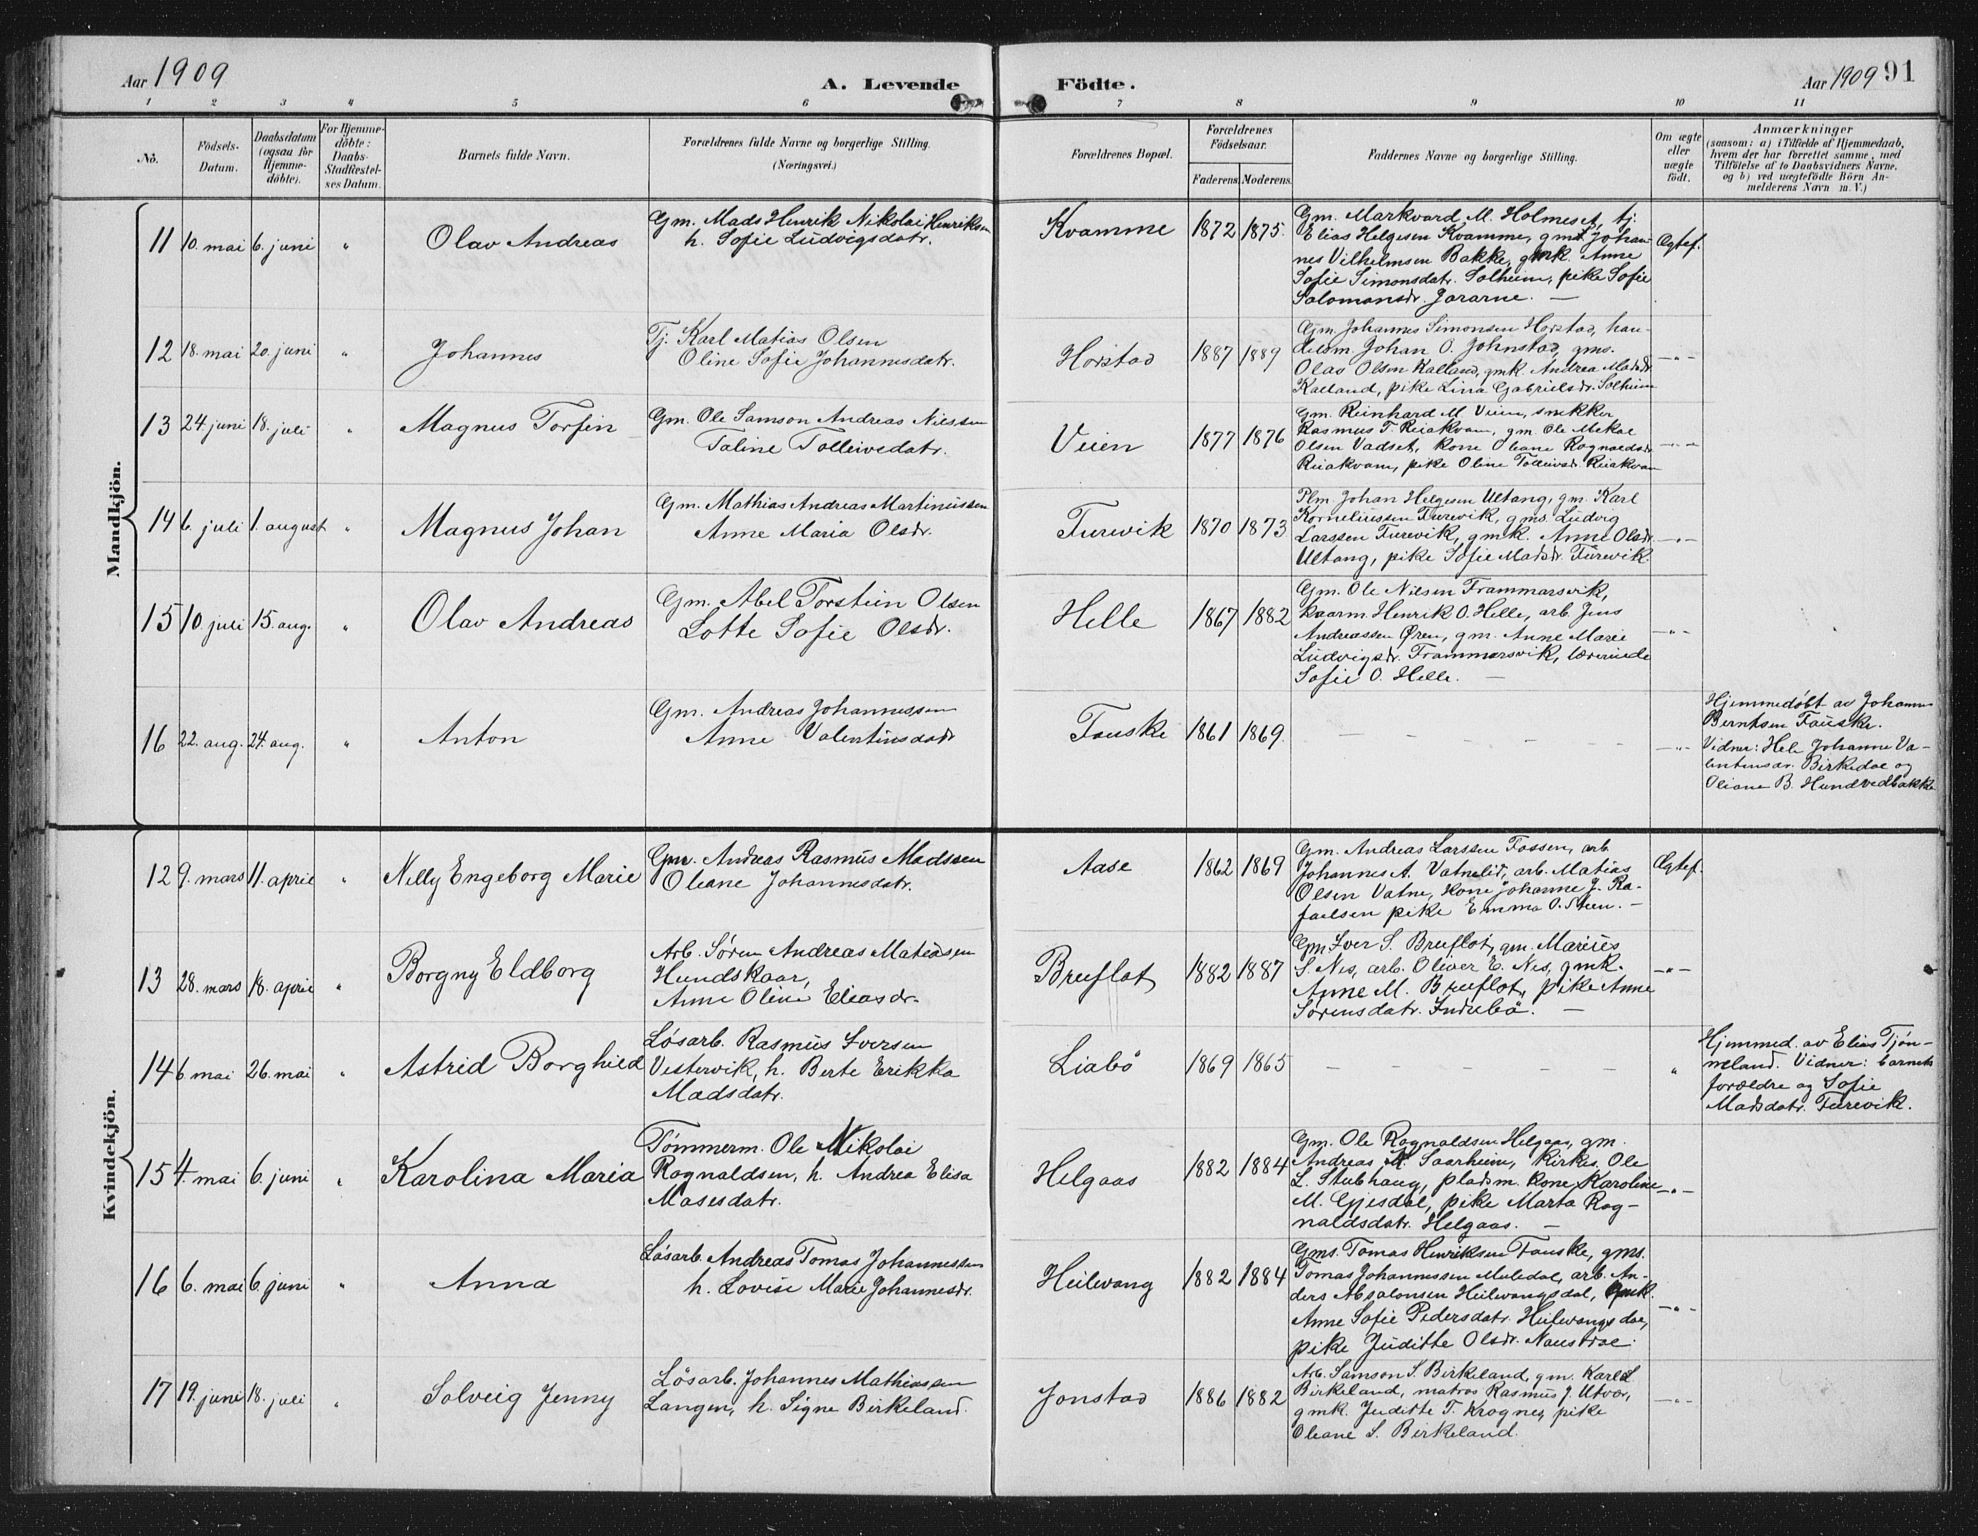 Aar 1909
A. Levende
Födte.
Aar 1909
91
1 2 3 4 5 6 7 8 9 10 11
No.
Födsels-
Datum.
Daabsdatum
(ogsaa for
Hjemme-
döbte).
For Hjemme-
döbte:
Daabs-
Stadfæstel-
ses Datum.
Barnets fulde Navn.
Forældrenes fulde Navne og borgerlige Stilling.
(Næringsvei.)
Forældrenes Bopæl.
Forældrenes
Födselsaar.
Faderens. Moderens.
Faddernes Navne og borgerlige Stilling.
Om ægte
eller
uægte
födt.
Anmærkninger
(saasom: a) i Tilfælde af Hjemmedaab,
hvem der har forrettet samme, med
Tilföielse af to Daabsvidners Navne,
og b) ved uægtefödte Börn An-
melderens Navn m. V.)
Mandkjön.
11 10. mai 6. juni " Olav Andreas
Gm. Mads Henrik Nikolai Henriksen
h. Sofie Ludvigsdatr.
Kvamme 1872 1875.
Gm. Markvard M. Holmeset, tj.
Elias Helgesen Kvamme, gms. Johan-
nes Vilhelmsen Bakke, gmk. Anne
Sofie Simonsdatr. Solheim, pike Sofie
Salomonsdr. Jararne. —
Ægtef.
12 18. mai 20. juni " Johannes
Tj. Karl Matias Olsen
Oline Sofie Johannesdatr.
Horstad 1887 1889
Gm. Johannes Simonsen Horstad, han-
delsm. Johan O. Johnstad, gms.
Olav Olsen Kalland, gmk. Andrea Madsdr.
Kalland, pike Lina Gabrielsdr. Solheim
—"—
13 24 juni 18. juli " Magnus Torfin
Gm. Ole Samson Andreas Nilssen
Taline Tolleivsdatr.
Veien 1877 1876
Gm. Reinhard M. Veien, snekker
Rasmus T. Riiakvam, gm. Ole Mekal
Olsen Vadset, kone Oleane Rognaldsdr.
Riiakvam, pike Oline Tolleivsdr. Riiakvam
—"—
14 6. juli 1. august " Magnus Johan
Gm. Mathias Andreas Martinussen
Anne Maria Olsdr.
Furevik 1870 1873
Plm. Johan Helgesen Ultang, gm. Karl
Korneliussen Furevik, gms. Ludvig
Larssen Furevik, gmk. Anne Olsdr.
Ultang, pike Sofie Madsdr. Furevik.
—"—
15 10. juli 15. aug. " Olav Andreas
Gm. Abel Torstein Olsen
Lotte Sofie Olsdr.
Helle 1867 1882
Gm. Ole Nilsen Frammarsvik,
kaarm. Henrik O. Helle, arb. Jens
Andreassen Øren, gm. Anne Marie
Ludvigsdr. Frammarsvik, lærerinde
Sofie O. Helle. —
—"—
16 22. aug. 24. aug. " Anton
Gm. Andreas Johannessen
Anne Valentinsdatr
Fauske 1861 1869.
— — — — —
—"—
Hjemmedöbt av Johannes
Berntsen Fauske.
Vidner: Hele Johanne Va-
lentinsdr. Birkedal og
Oliane B. Hundvedbakke
Kvindekjön.
12 9. mars 11. april " Nelly Engeborg Marie
Gm. Andreas Rasmus Madssen
Oleane Johannesdatr.
Aase 1862 1869
Gm. Andreas Larssen Fossen, arb.
Johannes A. Vatnelid, arb. Matias
Olsen Vatne, kone Johanne J. Ra-
faelsen pike Emma O. Steen. —
Ægtef.
13 28. mars 18. april " Borgny Eldborg
Arb. Søren Andreas Matiasen
Hundskaar,
Anne Oline Eliasdr.
Bruflot 1882 1887
Gm Iver S. Bruflot, gm. Marius
S. Nes, arb. Oliver E. Nes, gmk.
Anne M. Bruflot, pike Anne
Sørensdatr. Indrebö. —
—"—
14 6 mai 26. mai " Astrid Borghild
Løsarb. Rasmus Iversen
Vestervik, h. Berte Erikka
Madsdatr.
Liabö 1869 1865
— — — — — —
"
Hjemmed. av Elias Tjön-
neland. Vidner: barnets
forældre og Sofie
Madsdatr. Furevik.
15 4. mai 6. juni " Karolina Maria
Tømmerm. Ole Nikolai
Rognaldsen, h. Andrea Elisa
Mosesdatr.
Helgaas 1882 1884
Gm. Ole Rognaldsen Helgaas, gm.
Andreas A. Saarheim, kirkes. Ole
L. Stubhaug, pladsm. kone Karoline
M. Gjesdal, pike Marta Rog-
naldsdatr. Helgaas. —
—"—
16 6. mai 6. juni " Anna
Løsarb. Andreas Tomas Johannessen
h. Lovise Marie Johannesdr.
Heilevang 1882 1884
Gms. Tomas Henriksen Fauske, gms.
Tomas Johannessen Muledal, arb. An-
ders Absalonsen Heilevangsdal, gmk.
Anne Sofie Pedersdatr. Heilevangsdal,
pike Juditte Olsdr. Naustdal.
—"—
17 19. juni 18. juli " Solveig Jenny
Løsarb. Johannes Mathiassen
Langen, h. Signe Birkeland.
Jonstad 1886 1882
Arb. Samson S. Birkeland, gm. Karl L
Birkeland, matros Rasmus J. Utvær,
gmk. Juditte T. Krognes, pike
Oleane S. Birkeland.
—"—